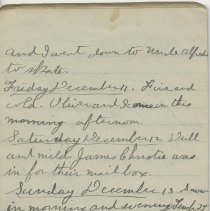 and I went down to Uncle Alfred
to skate.
Friday December 11. Fine and
cold. Oliver and I came in this
morning afternoon.
Saturday December 12 Dull
and mild. James Christie was
in for their mail box.
Sunday December 13. Snow
in morning and evening Temp 25